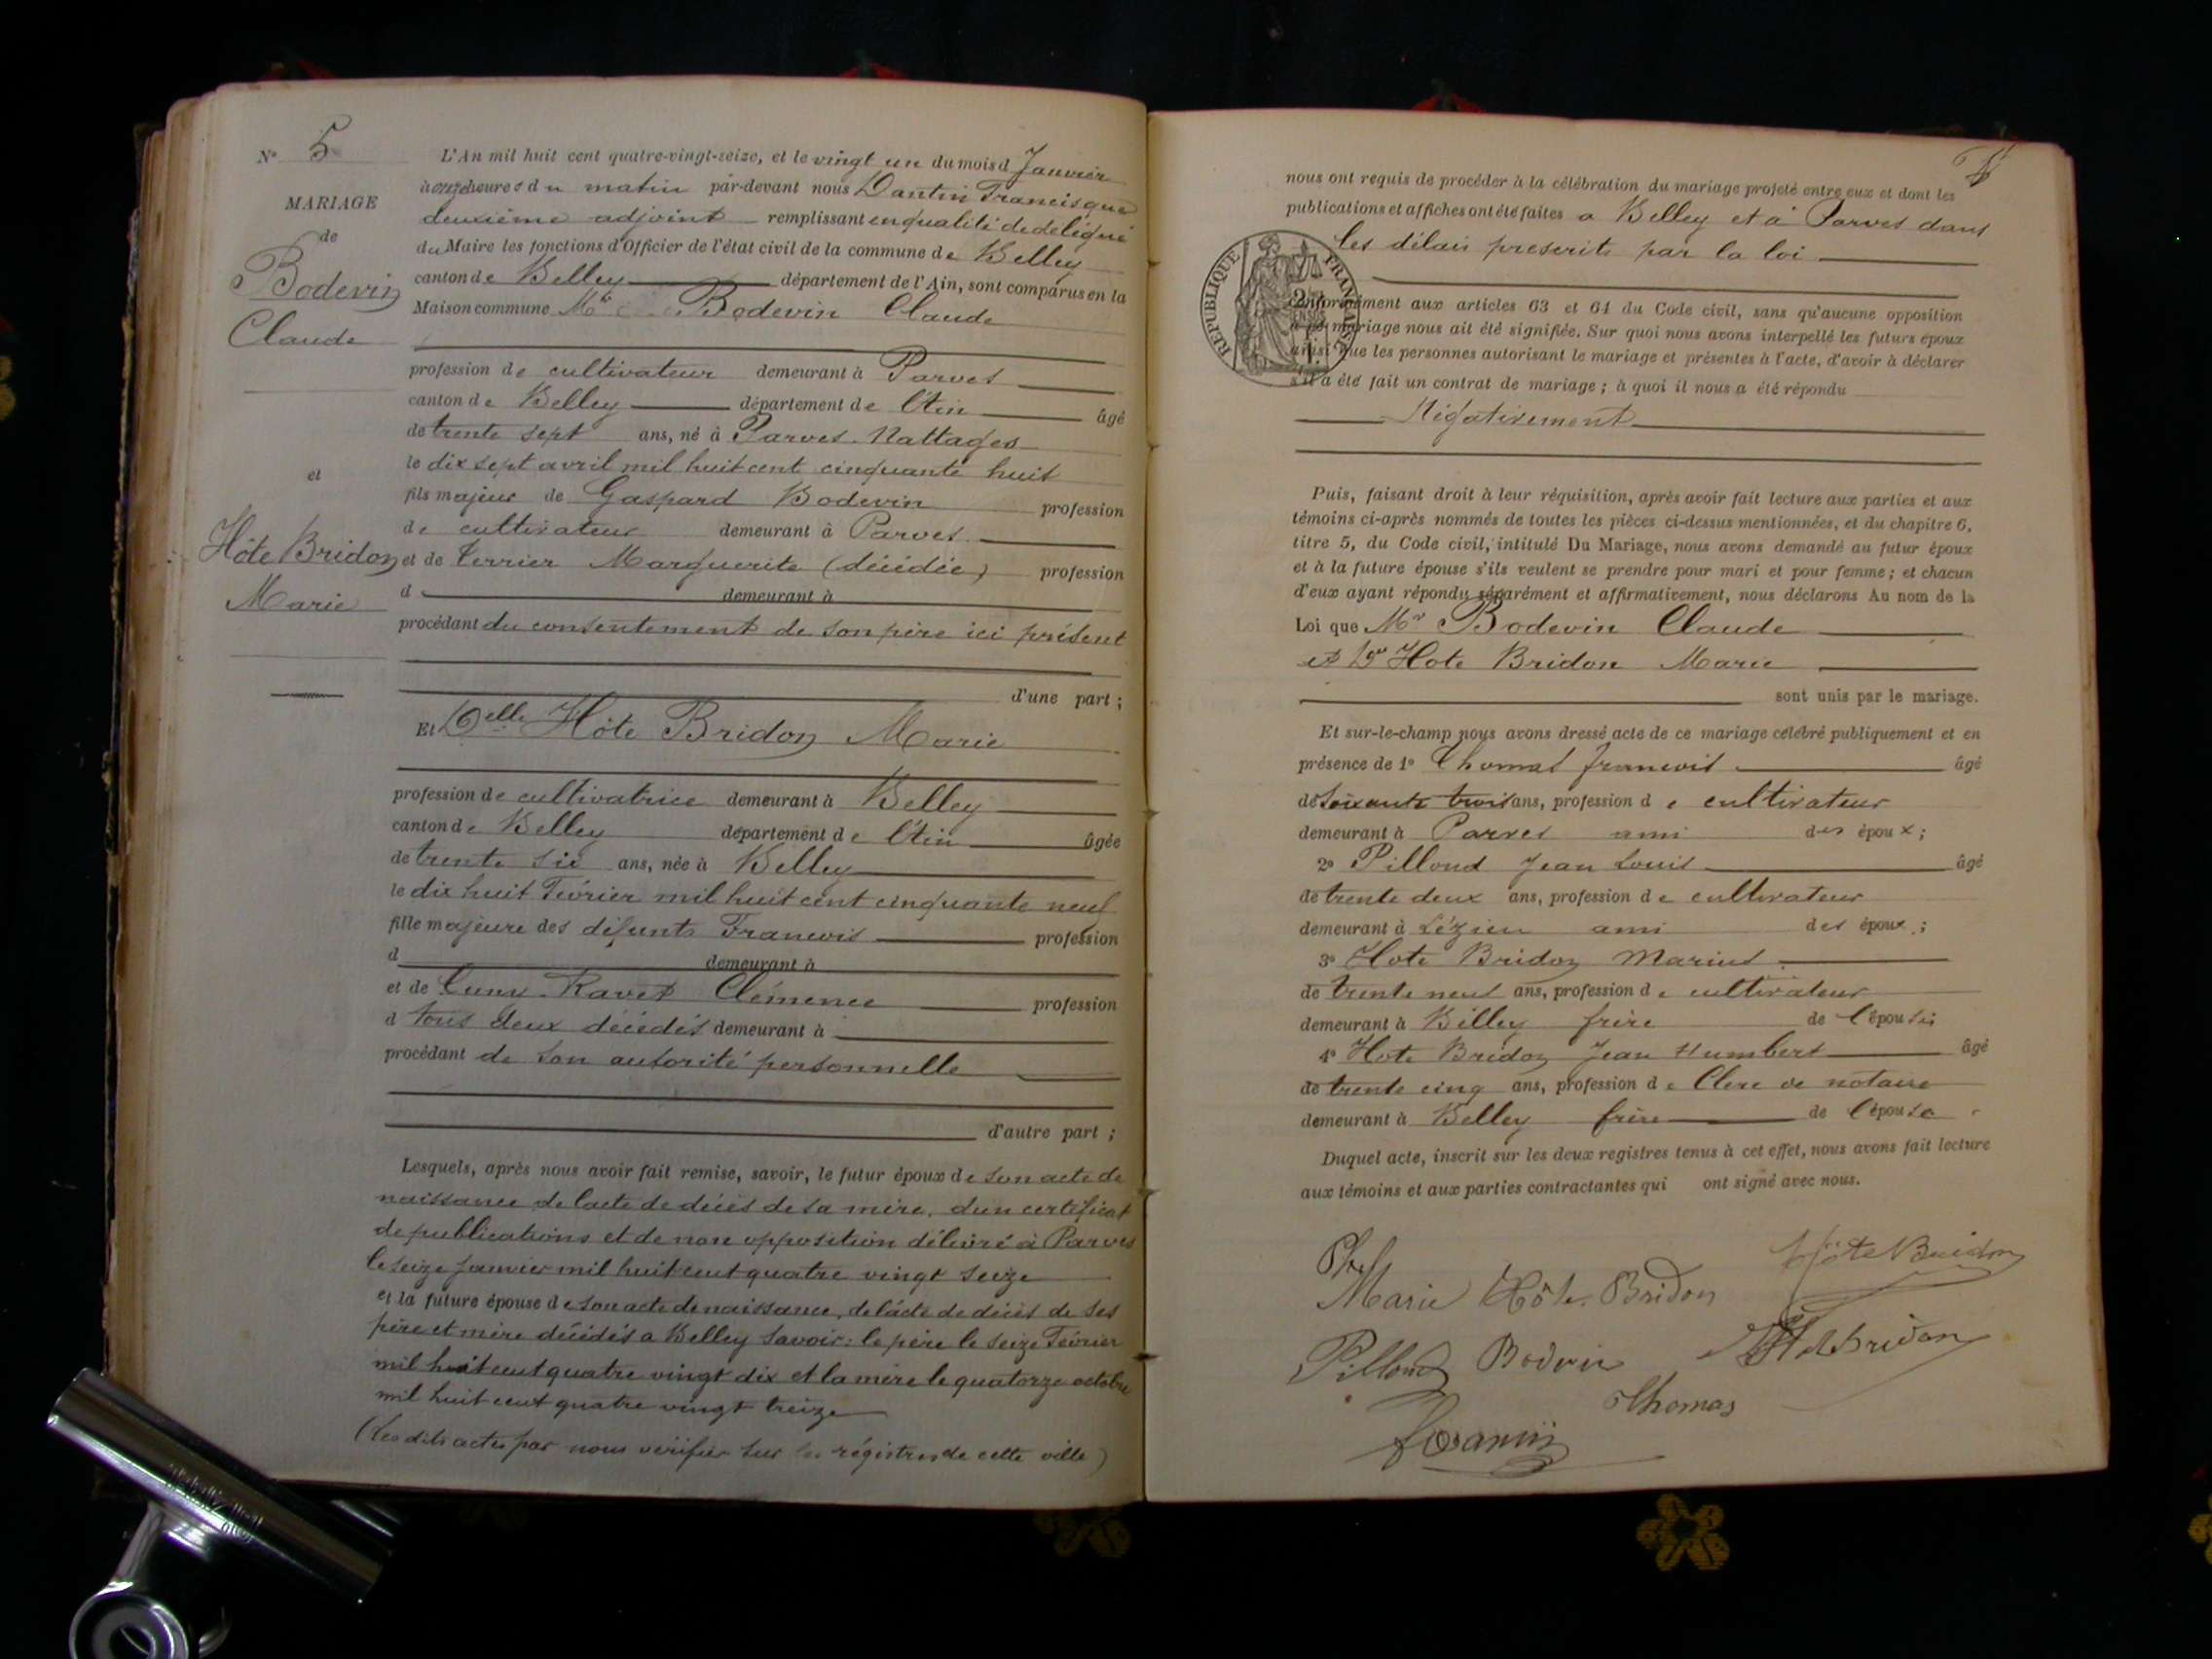 N° 5
MARIAGE
de
Bodevin
Claude
et
Hôte Bridon
Marie
L'An mil huit cent quatre-vingt-seize, et le vingt un du mois d Janvier
à onze heures du matin par-devant nous Dantin Francisque
deuxième adjoint remplissant en qualité de délégué
du Maire les fonctions d'Officier de l'état civil de la commune de Belley
canton de Belley département de l'Ain, sont comparus en la
Maison commune Mr Bodevin Claude
profession de cultivateur demeurant à Parves
canton de Belley département de l'Ain âgé
de trente sept ans, né à Parves-Nattages
le dix sept avril mil huit cent cinquante huit
fils majeur de Gaspard Bodevin profession
de cultivateur demeurant à Parves
et de Terrier Marguerite (décédée) profession
d demeurant à
procédant du consentement de son père ici présent
d'une part ;
Et Delle Hôte Bridon Marie
profession de cultivatrice demeurant à Belley
canton de Belley département de l'Ain âgée
de trente six ans, née à Belley
le dix huit Février mil huit cent cinquante neuf
fille majeure des défunts Francois profession
d demeurant à
et de Cuny-Ravet Clémence profession
d tous deux décédés demeurant à
procédant de son autorité personnelle
d'autre part ;
Lesquels, après nous avoir fait remise, savoir, le futur époux de son acte de
naissance de l'acte de décès de sa mère, d'un certificat
de publications et de non opposition délivré à Parves
le seize Janvier mil huit cent quatre vingt seize
et la future épouse de son acte de naissance, de l'acte de décès de ses
père et mère décédés a Belley savoir : le père le seize Février
mil huit cent quatre vingt dix et la mère le quatorze octobre
mil huit cent quatre vingt treize
(Les dits actes par nous vérifiés sur les régistres de cette ville)
nous ont requis de procéder à la célébration du mariage projeté entre eux et dont les
publications et affiches ont été faites a Belley et à Parves dans
les délais prescrits par la loi
RÉPUBLIQUE FRANÇAISE
conformément aux articles 63 et 64 du Code civil, sans qu'aucune opposition
à ce mariage nous ait été signifiée. Sur quoi nous avons interpellé les futurs époux
ainsi que les personnes autorisant le mariage et présentes à l'acte, d'avoir à déclarer
s'il a été fait un contrat de mariage ; à quoi il nous a été répondu
Négativement
Puis, faisant droit à leur réquisition, après avoir fait lecture aux parties et aux
témoins ci-après nommés de toutes les pièces ci-dessus mentionnées, et du chapitre 6,
titre 5, du Code civil, intitulé Du Mariage, nous avons demandé au futur époux
et à la future épouse s'ils veulent se prendre pour mari et pour femme ; et chacun
d'eux ayant répondu séparément et affirmativement, nous déclarons Au nom de la
Loi que Mr Bodevin Claude
et Dlle Hote Bridon Marie
sont unis par le mariage.
Et sur-le-champ nous avons dressé acte de ce mariage célébré publiquement et en
présence de 1° Thomas francois âgé
de soixante trois ans, profession de cultivateur
demeurant à Parves ami des époux ;
2° Pillond Jean Louis âgé
de trente deux ans, profession de cultivateur
demeurant à Lézieu ami des époux ;
3° Hote Bridon Marius
de trente neuf ans, profession de cultivateur
demeurant à Belley frère de l'épouse
4° Hote Bridon Jean Humbert âgé
de trente cinq ans, profession de Clerc de notaire
demeurant à Belley frère de l'épouse
Duquel acte, inscrit sur les deux registres tenus à cet effet, nous avons fait lecture
aux témoins et aux parties contractantes qui ont signé avec nous.
Hôte Bridon
Marie Hôte Bridon
Pillond Bodvin HteBridon
Thomas